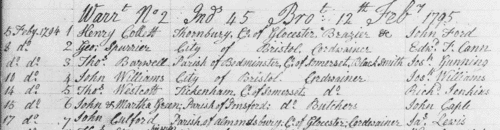 Warrt. No. 2 Ind. 45 Brot. 12th Feby. 1795
5 Feby. 1794 1 Henry Collett Thornbury, C. of Glocester Brazier &c John Ford
8 do. 2 Geo. Spurrier City of Bristol Cordwainer Edwd. T. Cann
do do. 3 Thos. Bagwell Parish of Bedminster, C. of Somerset, Black Smith Jos. Gunning
10 do. 4 John Williams City of Bristol Cordwainer Jos. Williams
14 do. 5 Thos. Westcott Tickenham, C. of Somerset do. Richd. Jenkins
16 do. 6 John & Martha Green; Parish of Butchers John Cagle
17 do. 7 John Parish of Almondsbury; C. of Glocester; Cordwainer Jas. Lewis